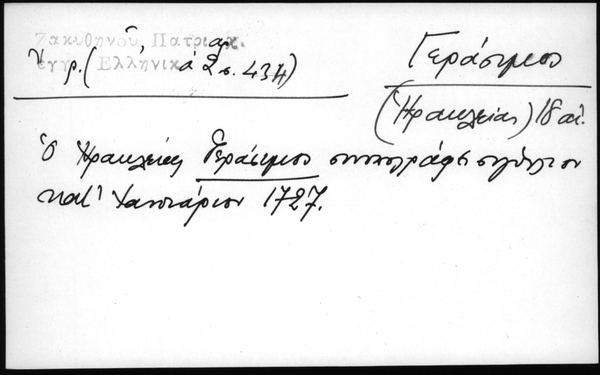 Ζακυθηνοῦ, Πατριαρχ.
ἔγγρ. Ἑλληνικ
(ἀ 2 σ. 434)
Γεράσιμος
(Ἡρακλείας) 18 αἰ.
Ὁ Ἡρακλείας Γεράσιμος συνυπογράφει σιγίλλιον
κατ' Ἰανουάριον 1727.